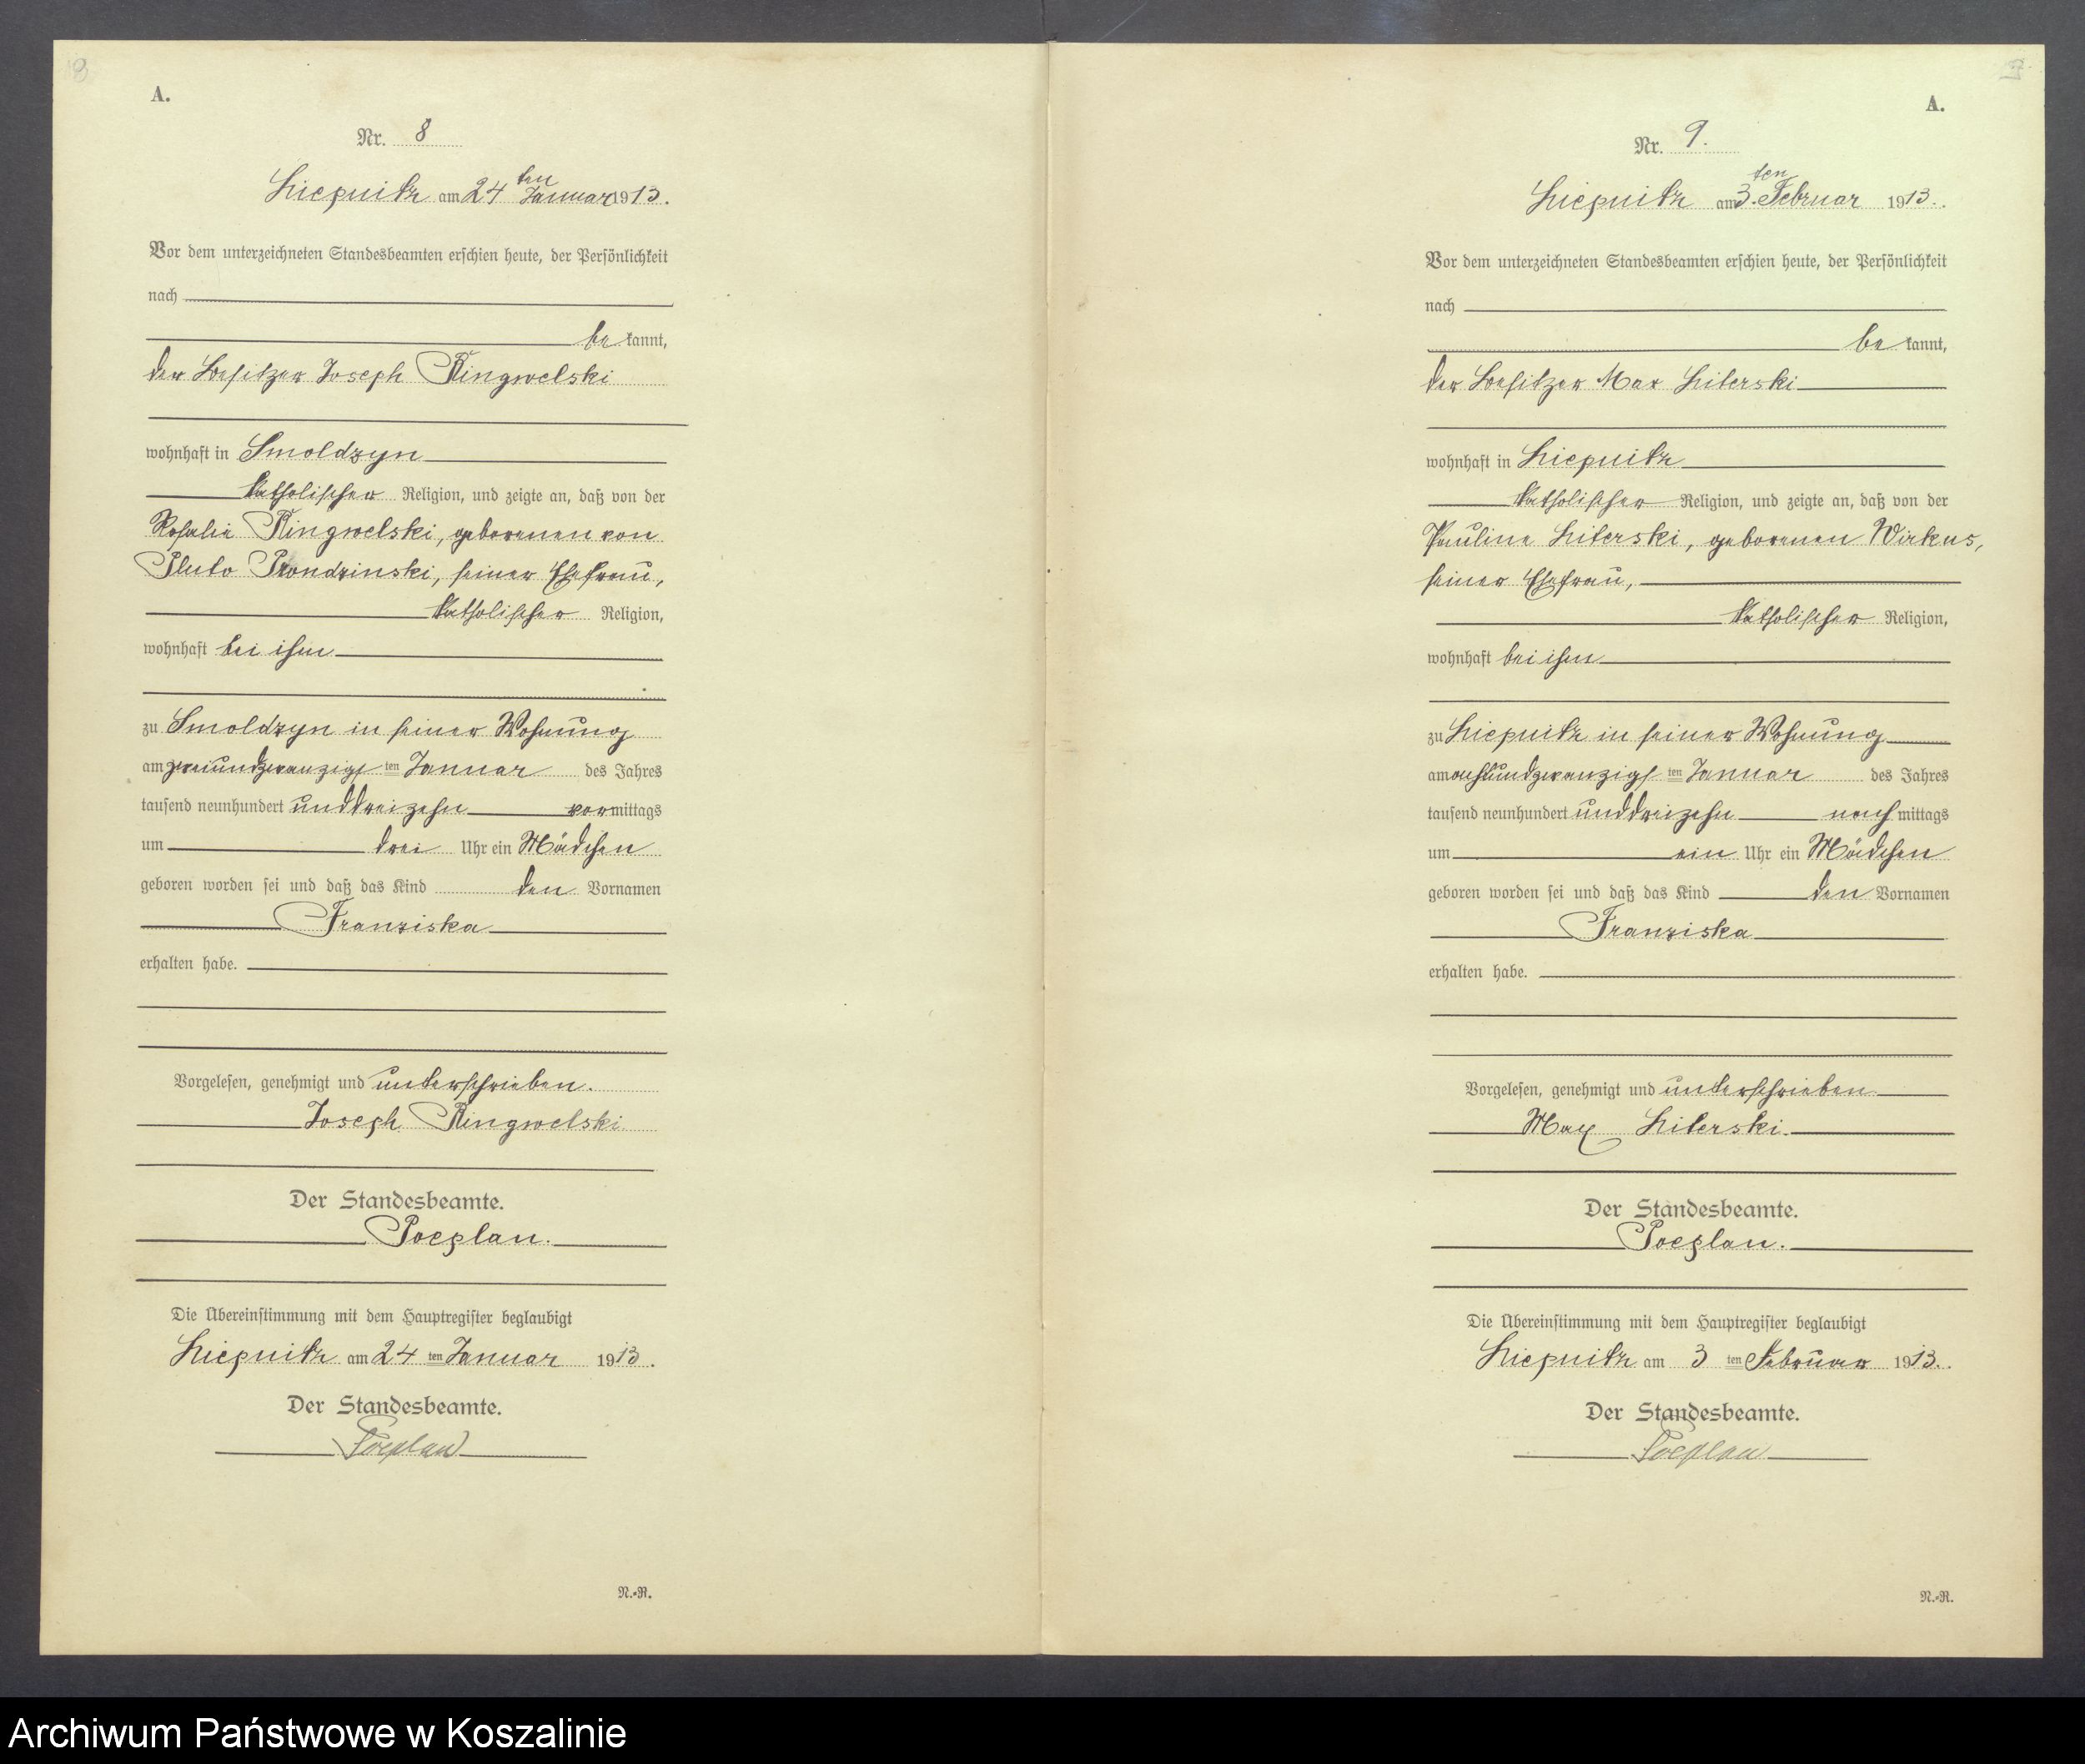 8
A.
Nr. 8
Liepnitz am 24 ten Januar 1913.
Vor dem unterzeichneten Standesbeamten erschien heute, der Persönlichkeit
nach
be kannt,
der Besitzer Joseph Ringwelski
wohnhaft in Smoldzyn
katholischer Religion, und zeigte an, daß von der
Rosalie Ringwelski, geborenen von
Pluto Prondzinski, seiner Ehefrau,
katholischer Religion,
wohnhaft bei ihm
zu Smoldzyn in seiner Wohnung
am zweiundzwanzigsten Januar des Jahres
tausend neunhundert unddreizehn vormittags
um drei Uhr ein Mädchen
geboren worden sei und daß das Kind den Vornamen
Franziska
erhalten habe.
Vorgelesen, genehmigt und unterschrieben.
Joseph Ringwelski
Der Standesbeamte.
Poeplau.
Die Übereinstimmung mit dem Hauptregister beglaubigt
Liepnitz am 24 ten Januar 1913.
Der Standesbeamte.
Poeplau
N.-R.
A.
Nr. 9.
Liepnitz am 3. ten Februar 1913.
Vor dem unterzeichneten Standesbeamten erschien heute, der Persönlichkeit
nach
be kannt,
der Besitzer Max Literski
wohnhaft in Liepnitz
katholischer Religion, und zeigte an, daß von der
Pauline Literski, geborenen Wirkus,
seiner Ehefrau,
katholischer Religion,
wohnhaft bei ihm
zu Liepnitz in seiner Wohnung
am achtundzwanzigsten Januar des Jahres
tausend neunhundert unddreizehn nachmittags
um ein Uhr ein Mädchen
geboren worden sei und daß das Kind den Vornamen
Franziska
erhalten habe.
Vorgelesen, genehmigt und unterschrieben
Max Literski.
Der Standesbeamte.
Poeplau.
Die Übereinstimmung mit dem Hauptregister beglaubigt
Liepnitz am 3 ten Februar 1913.
Der Standesbeamte.
Poeplau
N.-R.
Archiwum Państwowe w Koszalinie